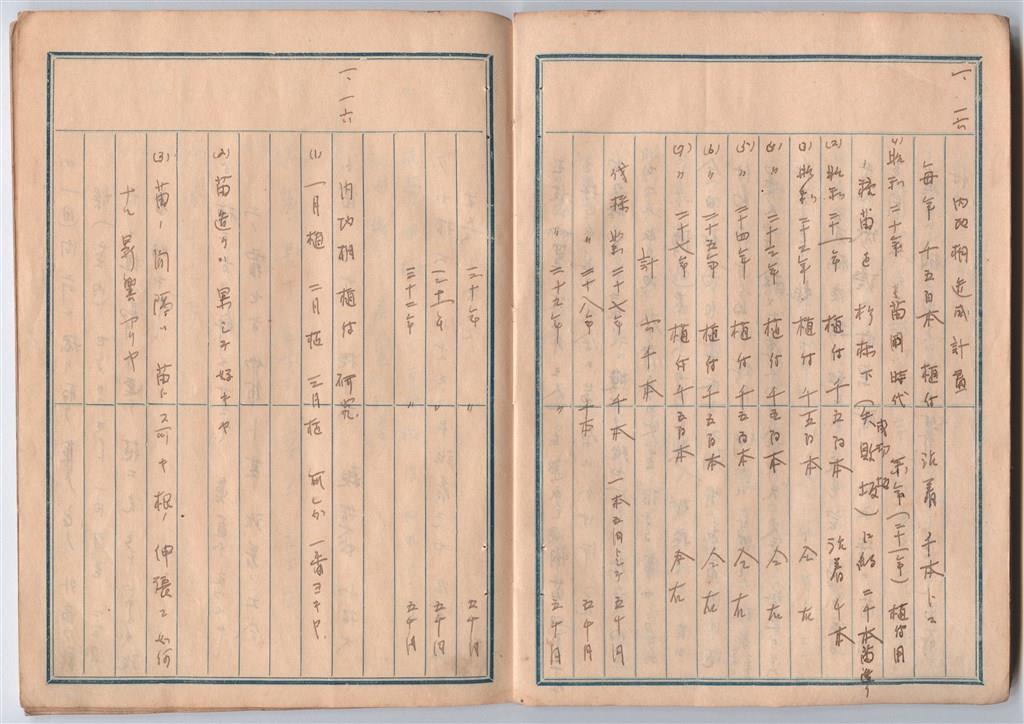 一、一六
内功桐造成計畫
毎年 千五百本 植付 活着 千本トス
(1) 昭和二十年 苗圃時代 来年(二十一年)植付用
種苗を杉林下(失敗坂)ニ約二千本苗造り
成功坂
(2) 昭和二十一年 植付 千五百本 活着千本
(3) 昭和二十二年 植付 千五百本 仝右
(4) 〃 二十三年 植付 千五百本 仝右
(5) 〃 二十四年 植付 千五百本 仝右
(6) 〃 二十五年 植付 千五百本 仝右
(7) 〃 二十六年 植付 千五百本 仝右
計 六千本
伐採 昭二十七年 千本 一本五円トシテ 五千円
〃 二十八年 千本 五千円
〃 二十九年 〃 五千円
三十年 〃 五千円
三十一年 〃 五千円
三十二年 〃 五千円
一、一六
内功桐植付研究
(1) 一月植 二月植 三月植 何レガ一番ヨキヤ
(2) 苗造リハ果シテ好キヤ
(3) 苗ノ間隔ハ 苗ト 可ヤ 根ノ伸張ニ如何